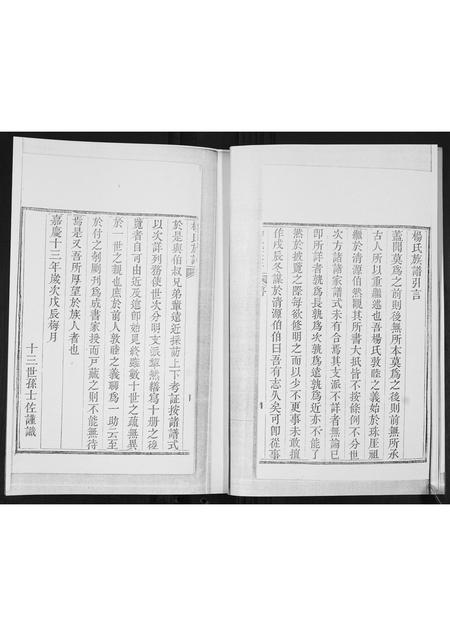 楊氏族譜引言
蓋聞莫爲之前則後無所本莫爲之後則前無所承
古人所以重繼述也吾楊氏敦睦之義始於珠厓祖
繼於清源伯然觀其所書大抵皆不按條例不分世
次方諸諸家譜式未有合焉其支派不詳者無論已
即所詳者孰爲長孰爲次孰爲遠孰爲近亦不能了
然於披覽之際每欲修明之而以少不更事未敢擅
作戊辰冬謀於清源伯伯曰吾有志久矣可即從事
楊氏族譜
於是與伯叔兄弟輩遠近採訪上下考証按諸譜式
以次詳列務使世次分明支派舉然繕寫十册之後
覽者自可由近及遠即始見終雖數十世之疏無異
於一世之親也庶於前人敦睦之義聊爲一助云至
於付之剞劂刊爲成書家授而戶藏之則不能無待
焉是又吾所厚望於族人者也
嘉慶十三年歲次戊辰梅月
十三世孫士佐謹識